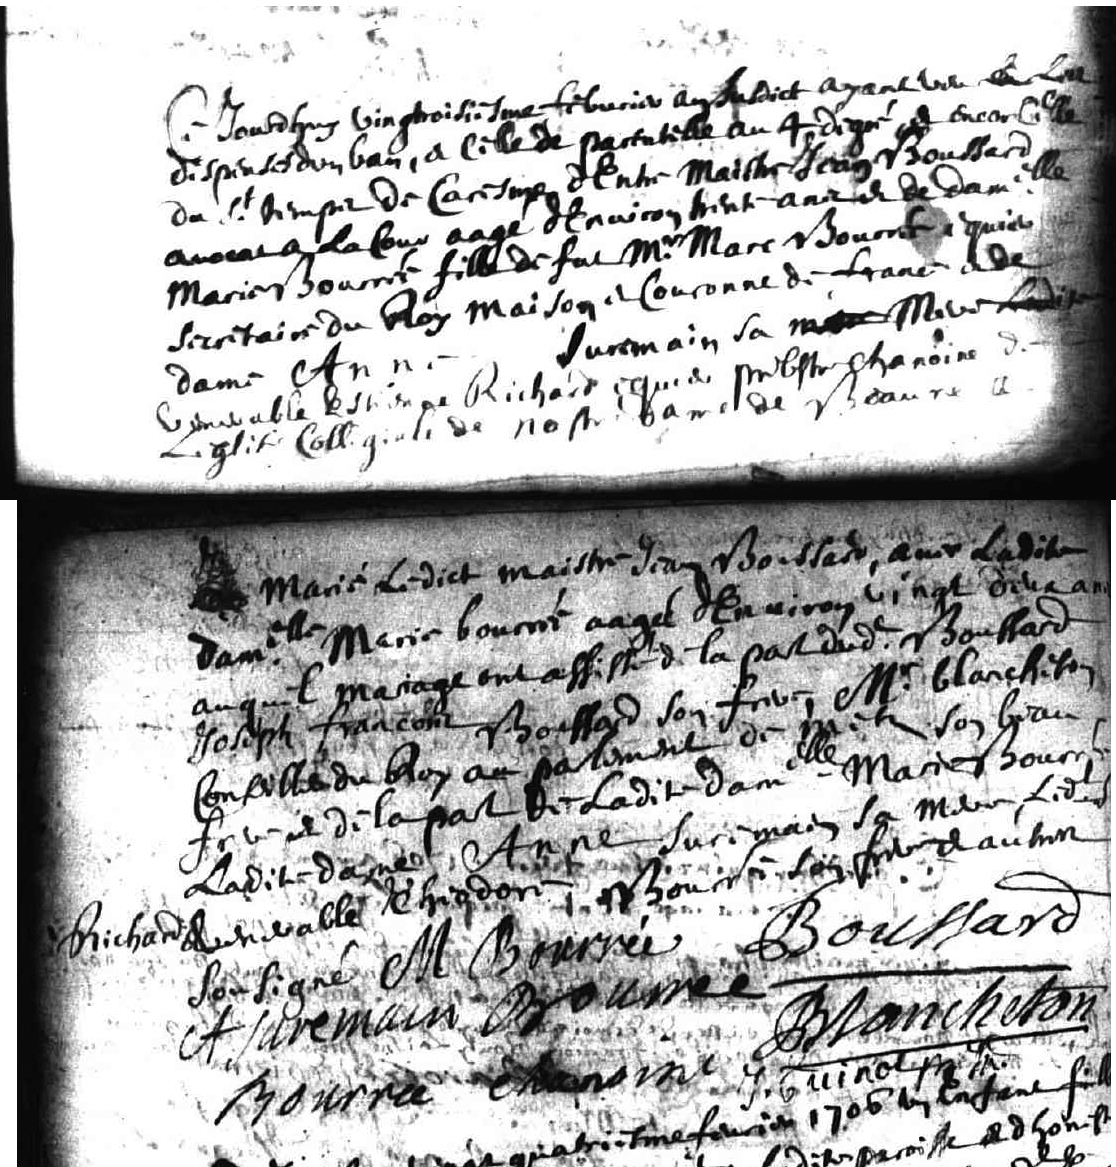 Ce Jourdhuy vingtroisiesme febvrier an susdict ayant veu les Lettres
dispenses dun ban, et celle de parentelle au 4e. degré et encor celle
du st. temps de Caresme, d'Entre Maistre Jean Boussard
avocat a La Cour aagé d'Environ trente ans et de damelle.
Marie Bourrée fille de fut Mr. Marc Bourrée equier
secretaire du Roy maison et Couronne de france et de
dame Anne Suremain sa Mere Ledit
venerable Estienne Richard equier prebstre chanoine de
Leglise Collegiale de nostre dame de Beaune a
Marié Ledict maistre Jean Boussard, avec Ladite
damelle. Marie bourrée aagée d'Environ vingt deux ans
auquel mariage ont assisté de la part dud. Boussard
Joseph francois Boussard son frere, Mr. blancheton
Conseiller du Roy au parlement de Metz son beau
frere et de la part de Ladite damelle. Marie Bourrée
Ladite dame Anne Suremain sa mere Ledit
Richard venerable Theodore Bourrée son frere et autres
Sousigné M Bourrée Boussard
A Suremain Bourree Blancheton
Bourree chanoine J. Guinot
quatriesme fevrier 1706 un Enfant fille
paroisse